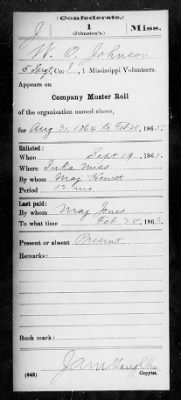 Confederate.
J 1 Miss.
(Johnston's.)
W. O. Johnson
5 Sergt, Co. , 1 Mississippi Volunteers.
Appears on
Company Muster Roll
of the organization named above,
for Aug 31, 1864 to Feb 28, 1865.
Enlisted:
When Sept 19, 1861.
Where Iuka Miss
By whom Maj Hewett
Period 12 mo
Last paid:
By whom Maj Jones
To what time Feb 28, 1863.
Present or absent Present
Remarks:
Book mark:
(642) Copyist.